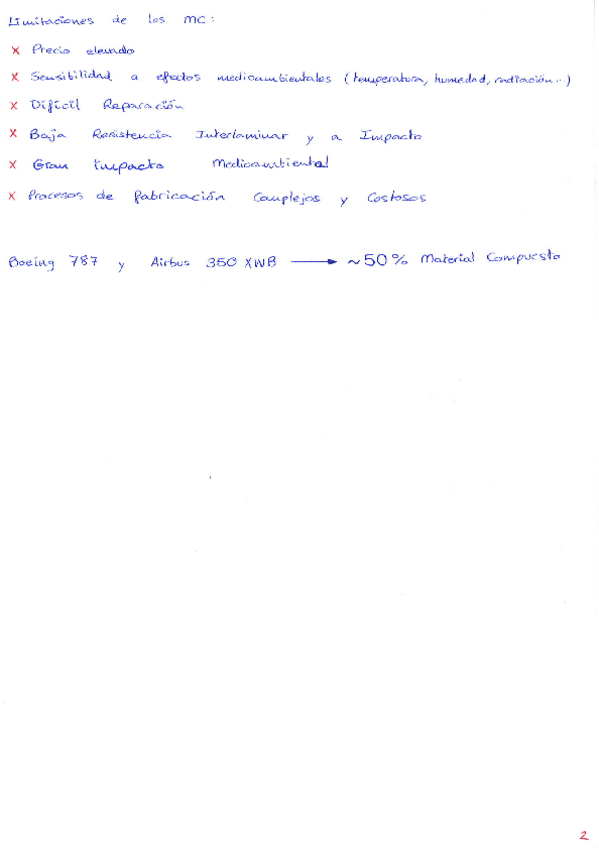 Limitaciones de los MC:
x Precio elevado
x Sensibilidad a efectos medioambientales (temperatura, humedad, radiación...)
x Difícil Reparación
x Baja Resistencia Interlaminar y a Impacto
x Gran impacto Medioambiental
x Procesos de fabricación Complejos y Costosos
Boeing 787 y Airbus 350 XWB → ~50% Material Compuesto
2